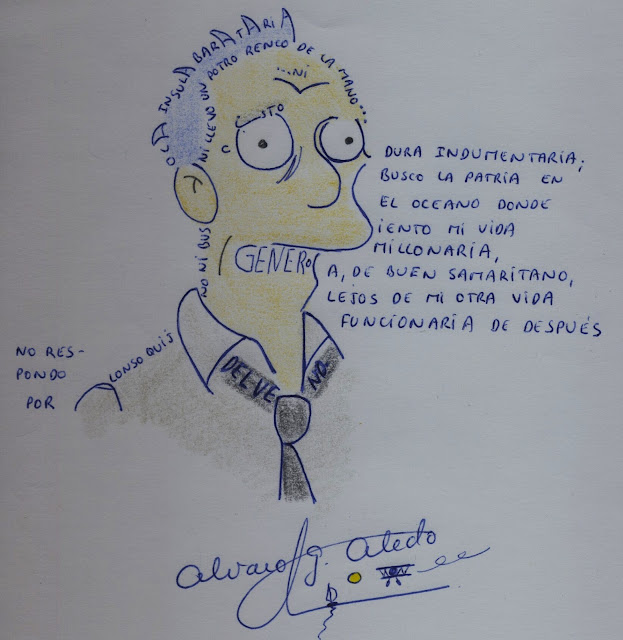 OCA INSULA BARATARIA
NI LLEVO UN POTRO RENCO DE LA MANO...
...NI
STO
C
DURA INDUMENTARIA;
BUSCO LA PATRIA EN
EL OCEANO DONDE
IENTO MI VIDA
MILLONARIA,
GENERO
A, DE BUEN SAMARITANO,
LEJOS DE MI OTRA VIDA
FUNCIONARIA DE DESPUÉS
NO NI BUS
NO RES-
PONDO
POR
LONSO QUIJ
DELVE
NO
alvaro g. Aledo